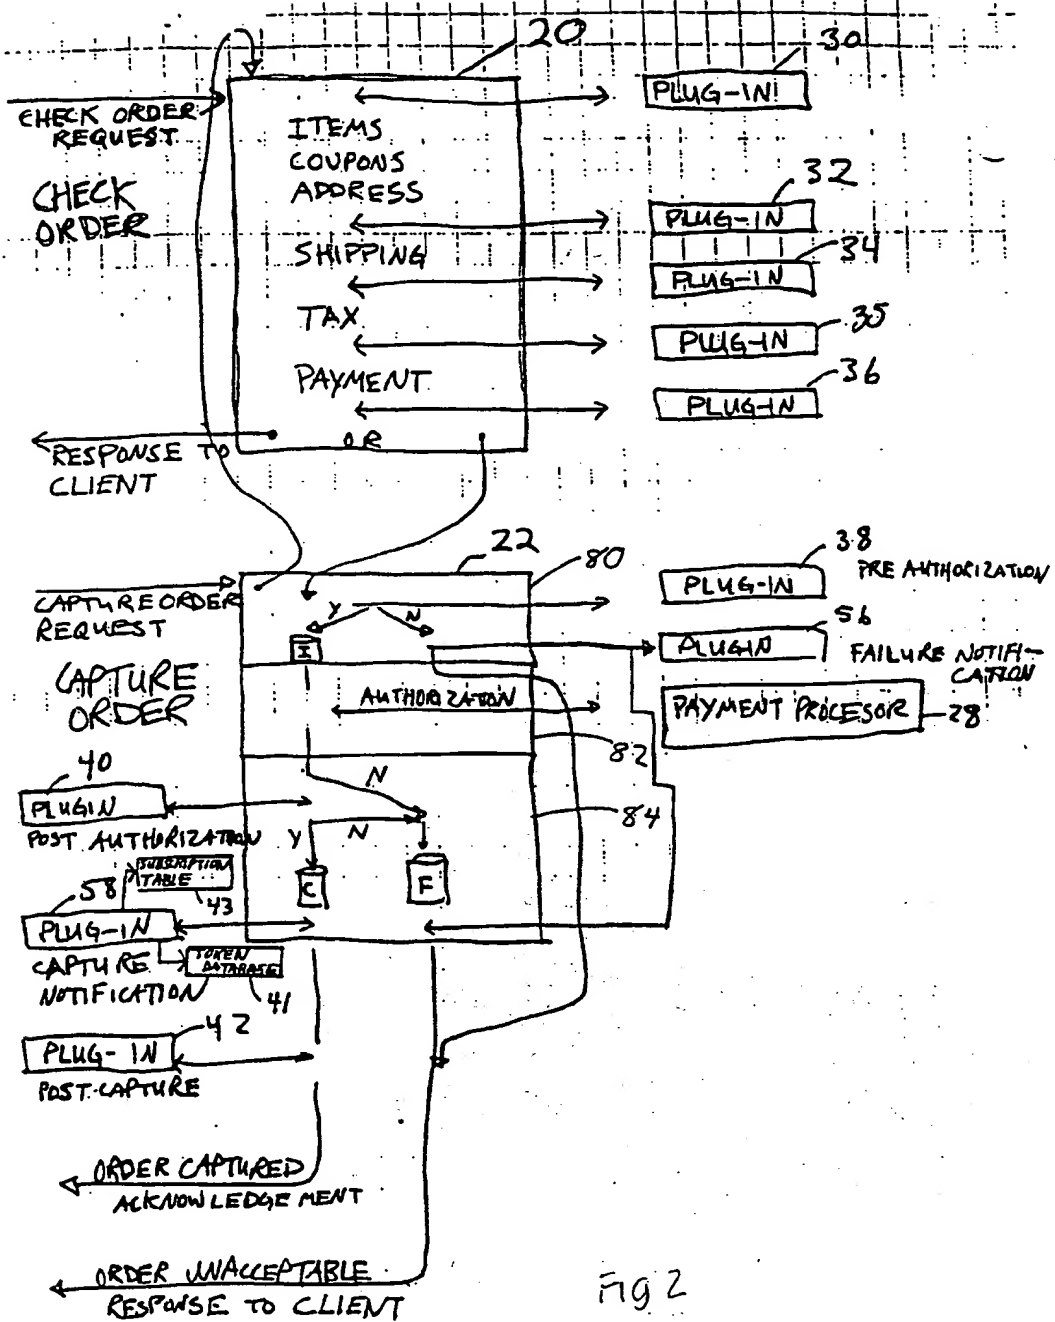 20
30
PLUG-IN
CHECK ORDER
REQUEST
ITEMS
COUPONS
ADDRESS
CHECK
ORDER
32
PLUG-IN
SHIPPING
34
PLUG-IN
TAX
35
PLUG-IN
PAYMENT
36
PLUG-IN
OR
RESPONSE TO
CLIENT
22
80
38
PLUG-IN
PRE AUTHORIZATION
CAPTURE ORDER
REQUEST
Y
N
I
56
PLUGIN
FAILURE NOTIFI-
CATION
CAPTURE
ORDER
AUTHORIZATION
PAYMENT PROCESOR
28
82
40
PLUGIN
POST AUTHORIZATION
N
84
Y
N
SUBSCRIPTION
TABLE
43
58
PLUG-IN
C
F
CAPTURE
NOTIFICATION
TOKEN
DATABASE
41
42
PLUG-IN
POST-CAPTURE
ORDER CAPTURED
ACKNOWLEDGEMENT
ORDER UNACCEPTABLE
RESPONSE TO CLIENT
Fig 2